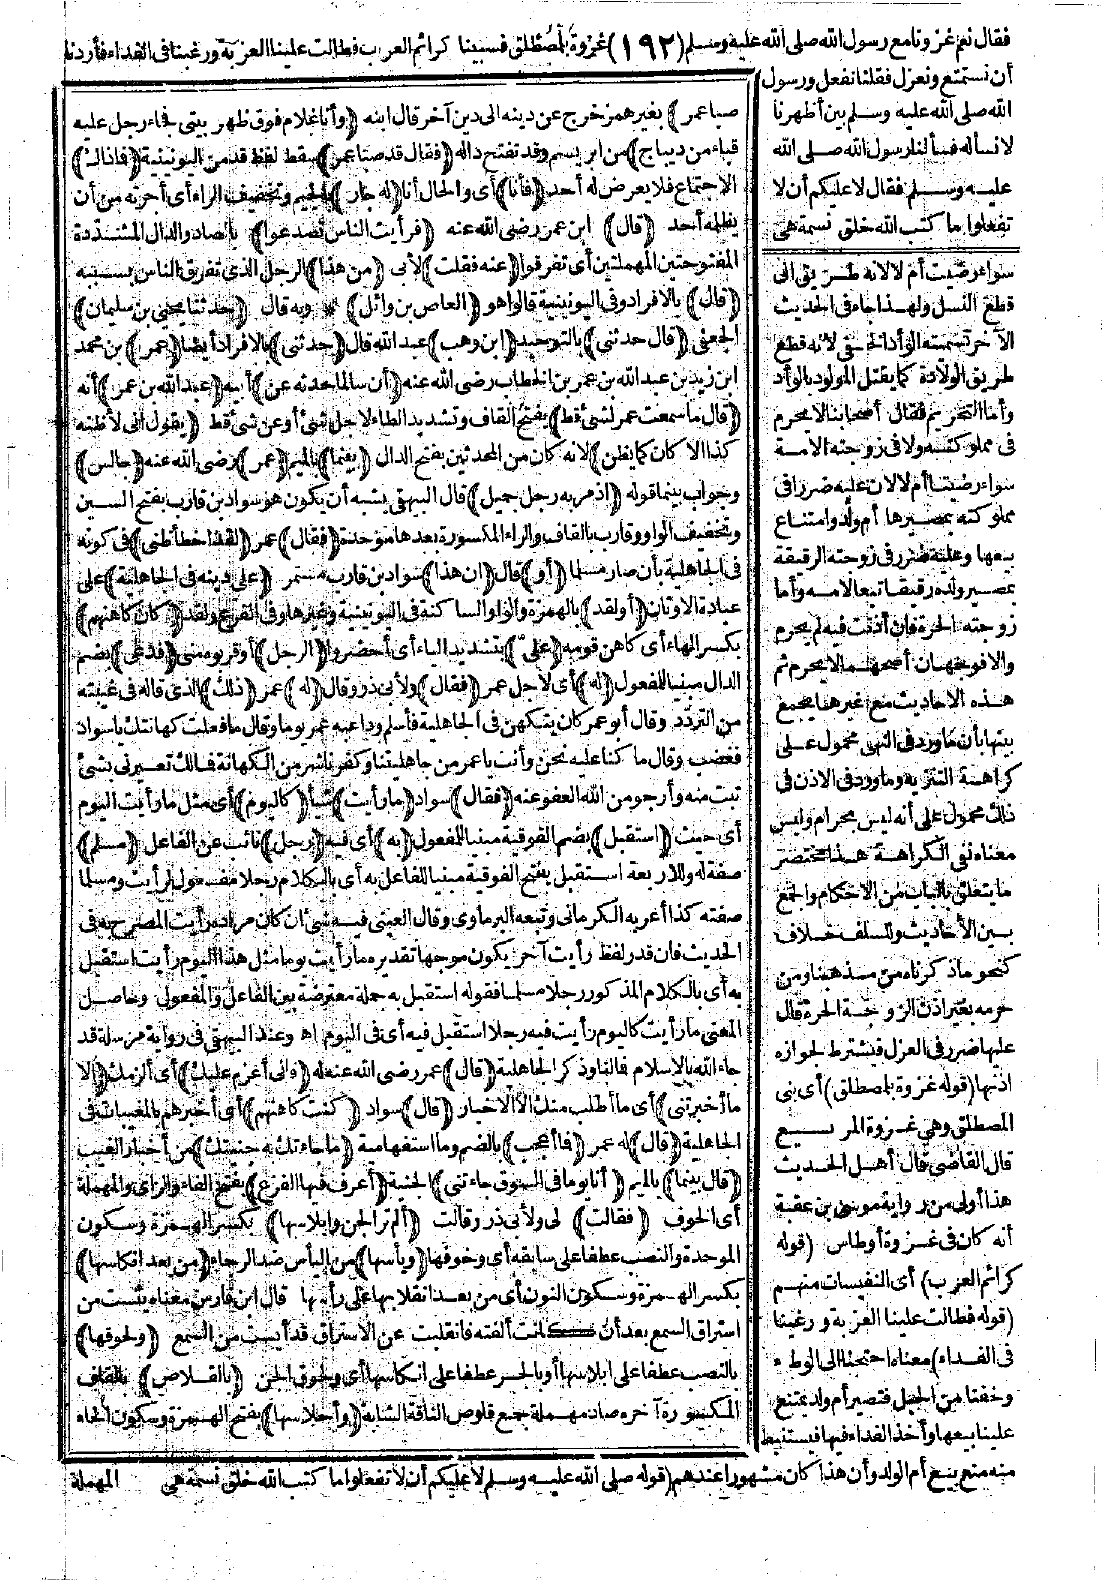 فقال نعم غزونا مع رسول الله صلى الله عليه وسلم (١٩٢) غزوة بالمصطلق فسبينا كرائم العرب فطالت علينا العزبة ورغبنا فى الفداء فأردنا
أن نستمتع ونعزل فقلنا نفعل ورسول
الله صلى الله عليه وسلم بين أظهرنا
لا نسأله فسألنا رسول الله صلى الله
عليه وسلم فقال لا عليكم أن لا
تفعلوا ما كتب الله خلق نسمة هى
سواء رضيت أم لا لانه طريق الى
قطع النسل ولهذا جاء فى الحديث
الآخر تسميته الوأد الخفى لانه قطع
طريق الولادة كما يقتل المولود بالوأد
وأما التحريم فقال أصحابنا لا يحرم
فى مملوكته ولا فى زوجته الامة
سواء رضيتا أم لا لان عليه ضررا فى
مملوكته بمصيرها أم ولد وامتناع
بيعها وعليه ضرر فى زوجته الرقيقة
بمصير ولده رقيقا تبعا لامه وأما
زوجته الحرة فان أذنت فيه لم يحرم
والا فوجهان أصحهما لا يحرم ثم
هذه الاحاديث مع غيرها يجمع
بينها بأن ما ورد فى النهى محمول على
كراهة التنزيه وما ورد فى الاذن فى
ذلك محمول على أنه ليس بحرام وليس
معناه نفى الكراهة هذا مختصر
ما يتعلق بالباب من الاحكام والجمع
بين الأحاديث وللسلف خلاف
كنحو ما ذكرناه من مذهبنا ومن
حرمه بغير اذن الزوجة الحرة قال
عليها ضرر فى العزل فيشترط لجوازه
اذنها (قوله غزوة بلمصطلق) أى بنى
المصطلق وهى غزوة المريسيع
قال القاضى قال أهل الحديث
هذا أولى من رواية موسى بن عقبة
أنه كان فى غزوة أوطاس (قوله
كرائم العرب) أى النفيسات منهم
(قوله فطالت علينا العزبة ورغبنا
فى الفداء) معناه احتجنا الى الوطء
وخفنا من الحبل فتصير أم ولد يمتنع
علينا بيعها وأخذ الفداء فيها فيستنبط
منه منع بيع أم الولد وأن هذا كان مشهورا عندهم (قوله صلى الله عليه وسلم لا عليكم أن لا تفعلوا ما كتب الله خلق نسمة هى
صبا عمر) بغير همز خرج عن دينه الى دين آخر قال ابنه (وأنا غلام فوق ظهر بيتى فجاء رجل عليه
قباء من ديباج) من ابريسم وقد تفتح داله (فقال قد صبا عمر) سقط لفظ قد من اليونينية (فما ذاك)
الاجتماع فلا يعرض له أحد (فأنا) أى والحال أنا (له جار) بالجيم وتخفيف الراء أى أجرته من أن
يظلمه أحد (قال) ابن عمر رضى الله عنه (فرأيت الناس تصدعوا) بالصاد والدال المشددة
المفتوحتين المهملتين أى تفرقوا (عنه فقلت) لأبى (من هذا) الرجل الذى تفرق الناس بسببه
(قال) بالافراد وفى اليونينية قالوا هو (العاص بن وائل) * وبه قال (حدثنا يحيى بن سليمان)
الجعفى (قال حدثنى) بالتوحيد (ابن وهب) عبد الله قال (حدثنى) بالافراد أيضا (عمر) بن محمد
ابن زيد بن عبد الله بن عمر بن الخطاب رضى الله عنه (أن سالما حدثه عن) أبيه (عبد الله بن عمر) أنه
(قال ما سمعت عمر لشئ قط) بفتح القاف وتشديد الطاء لاجل شئ أو عن شئ قط (يقول انى لأظنه
كذا الا كان كما يظن) لانه كان من المحدثين بفتح الدال (بينما) بالميم (عمر) رضى الله عنه (جالس)
وجواب بينما قوله (اذ مر به رجل جميل) قال البيهقى يشبه أن يكون هو سواد بن قارب بفتح السين
وتخفيف الواو وقارب بالقاف والراء المكسورة بعدها موحدة (فقال) عمر (لقد أخطأ ظنى) فى كونه
فى الجاهلية بأن صار مسلما (أو) قال (ان هذا) سواد بن قارب مستمر (على دينه فى الجاهلية) على
عبادة الاوثان (أو لقد) بالهمزة والواو الساكنة فى اليونينية وغيرها وفى الفرع ولقد (كان كاهنهم)
بكسر الهاء أى كاهن قومه (علىّ) بتشديد الياء أى أحضروا (الرجل) أو قربوه منى (فدعى) بضم
الدال مبنيا للمفعول (له) أى لاجل عمر (فقال) ولأبى ذر وقال (له) عمر (ذلك) الذى قاله فى غيبته
من التردد وقال أبو عمر كان يتكهن فى الجاهلية فأسلم وداعبه عمر يوما وقال ما فعلت كهانتك يا سواد
فغضب وقال ما كنا عليه نحن وأنت يا عمر من جاهليتنا وكفرنا شر من الكهانة فمالك تعيرنى بشئ
تبت منه وأرجو من الله العفو عنه (فقال) سواد (ما رأيت) شيأ (كاليوم) أى مثل ما رأيت اليوم
أى حيث (استقبل) بضم الفوقية مبنيا للمفعول (به) أى فيه (رجل) نائب عن الفاعل (مسلم)
صفة له وللاربعة استقبل بفتح الفوقية مبنيا للفاعل به أى بالكلام رجلا مفعول لرأيت ومسلما
صفته كذا أعربه الكرمانى وتبعه البرماوى وقال العينى فيه شئ ان كان مراده رأيت المصرح به فى
الحديث فان قدر لفظ رأيت آخر يكون موجها تقديره ما رأيت يوما مثل هذا اليوم رأيت استقبل
به أى بالكلام المذكور رجلا مسلما فقوله استقبل به جملة معترضة بين الفاعل والمفعول وحاصل
المعنى ما رأيت كاليوم رأيت فيه رجلا استقبل فيه أى فى اليوم اه وعند البيهقى فى رواية مرسلة قد
جاء الله بالاسلام فما لنا وذكر الجاهلية (قال) عمر رضى الله عنه له (فانى أعزم عليك) أى ألزمك (الا
ما أخبرتنى) أى ما أطلب منك الا الاخبار (قال) سواد (كنت كاهنهم) أى أخبرهم بالمغيبات فى
الجاهلية (قال) له عمر (فما أعجب) بالضم وما استفهامية (ما جاءتك به جنيتك) من أخبار الغيب
(قال بينما) بالميم (أنا يوما فى السوق جاءتنى) الجنية (أعرف فيها الفزع) بفتح الفاء والزاى والمهملة
أى الخوف (فقالت) لى ولأبى ذر وقالت (ألم تر الجن وابلاسها) بكسر الهمزة وسكون
الموحدة والنصب عطفا على سابقه أى وخوفها (ويأسها) من اليأس ضد الرجاء (من بعد انكاسها)
بكسر الهمزة وسكون النون أى من بعد انقلابها على رأسها قال ابن فارس معناه يئست من
استراق السمع بعد أن كانت ألفته فانقلبت عن الاستراق قد أيست من السمع (ولحوقها)
بالنصب عطفا على ابلاسها أو بالجر عطفا على انكاسها أى ولحوق الجن (بالقلاص) بالقاف
المكسورة آخره صاد مهملة جمع قلوص الناقة الشابة (وأحلاسها) بفتح الهمزة وسكون الحاء
المهملة